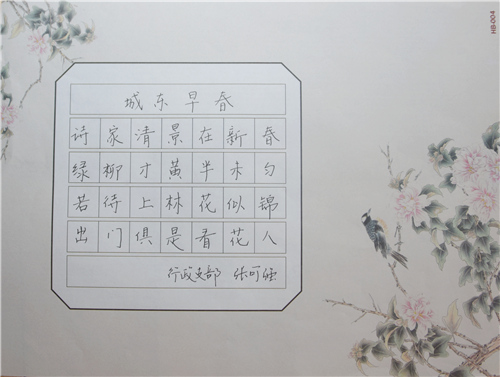 城东早春
诗家清景在新春
绿柳才黄半未匀
若待上林花似锦
出门俱是看花人
行政支部
HB-004